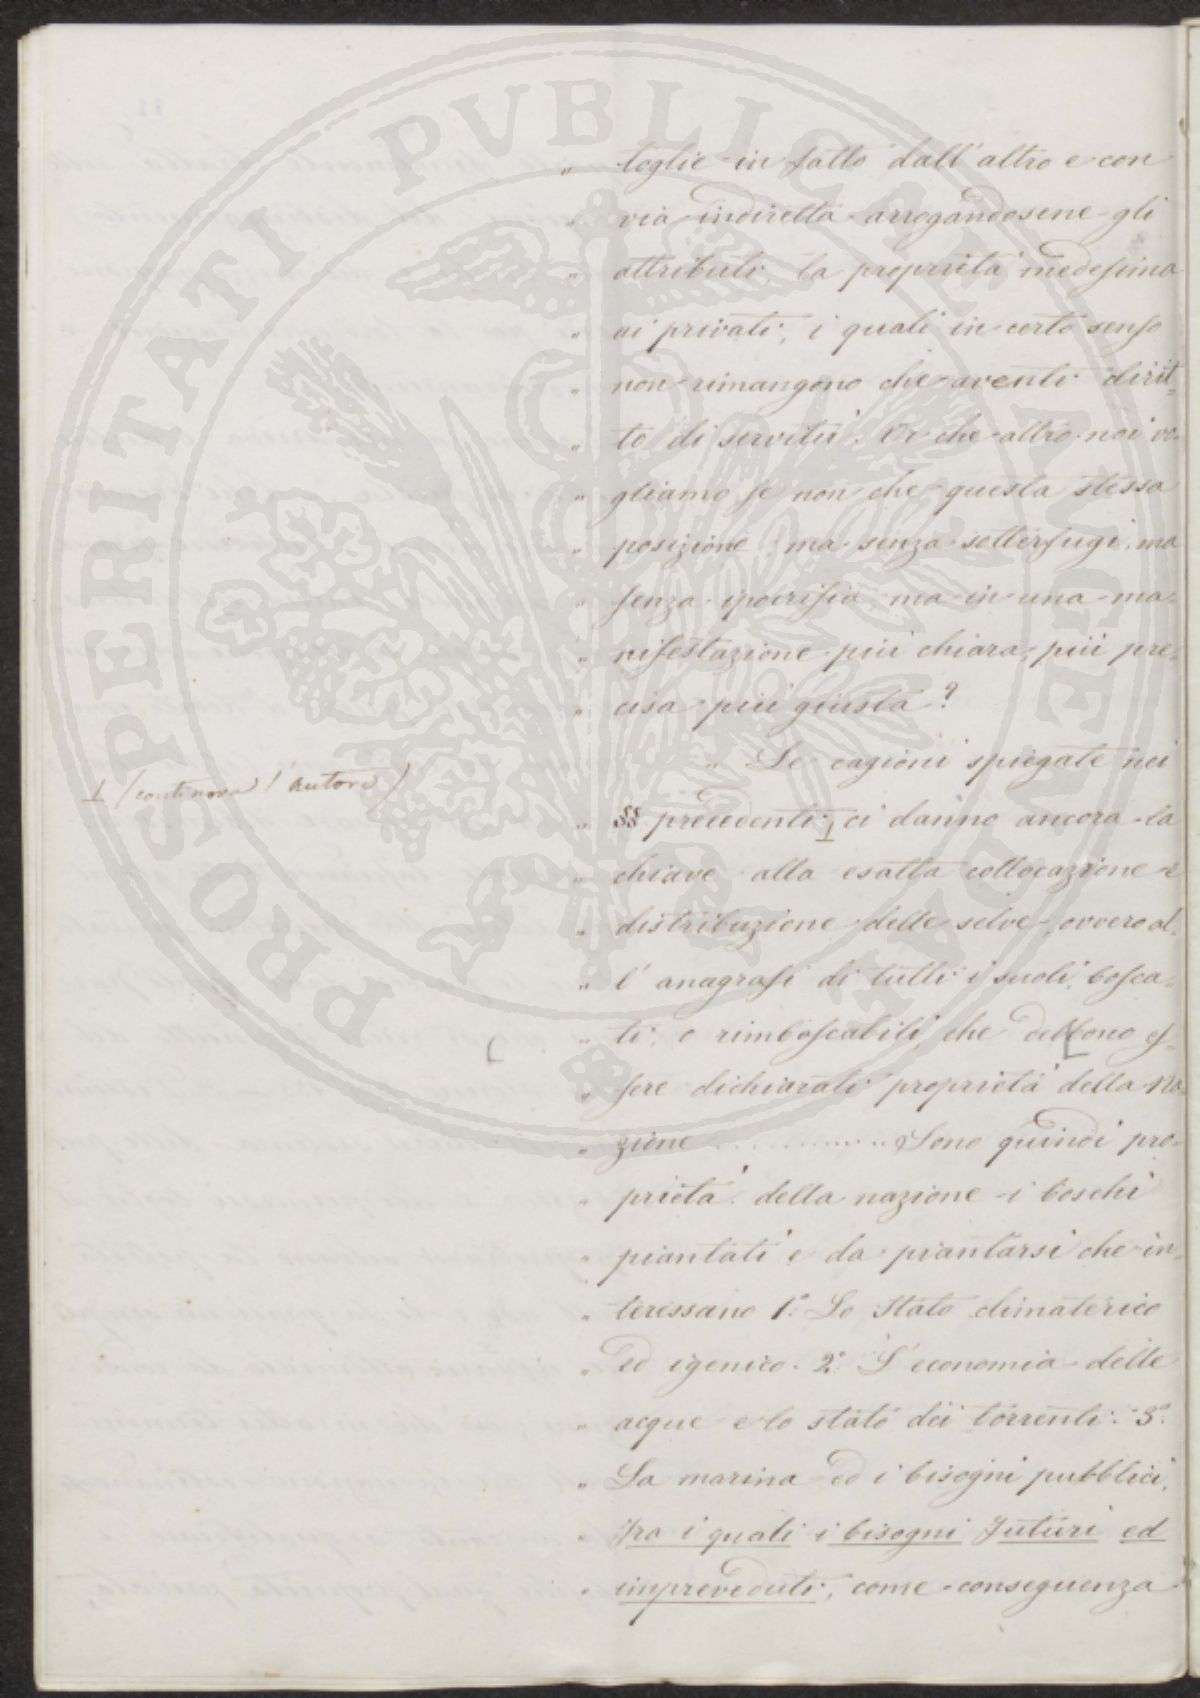 PROSPERITATI PVBLICAE AVGENDAE
„ toglie in fatto dall'altro e con
„ via indiretta arrogandosene gli
„ attributi, la proprietà medesima
„ ai privati, i quali in certo senso
„ non rimangono che aventi dirit-
„ to di servitù. Or che altro noi vo-
„ gliamo se non che questa stessa
„ posizione, ma senza sotterfugi, ma
„ senza ipocrisia, ma in una ma-
„ nifestazione più chiara, più pre-
„ cisa più giusta?
„ Le cagioni spiegate nei
⊥ (continova l'autore)
„ §§ precedenti ⊥ ci danno ancora la
„ chiave alla esatta collocazione e
„ distribuzione delle selve, ovvero al-
„ l'anagrafi di tutti i suoli, bosca-
„ ti, o rimboscabili, che debbono es-
„ sere dichiarati proprietà della na-
„ zione .............. Sono quindi pro-
„ prietà della nazione i boschi
„ piantati e da piantarsi che in-
„ teressano 1.° Lo Stato climaterico
„ ed igenico. 2.° L'economia delle
„ acque e lo stato dei torrenti. 3.°
„ La marina ed i bisogni pubblici,
„ fra i quali i bisogni futuri ed
„ impreveduti, come conseguenza